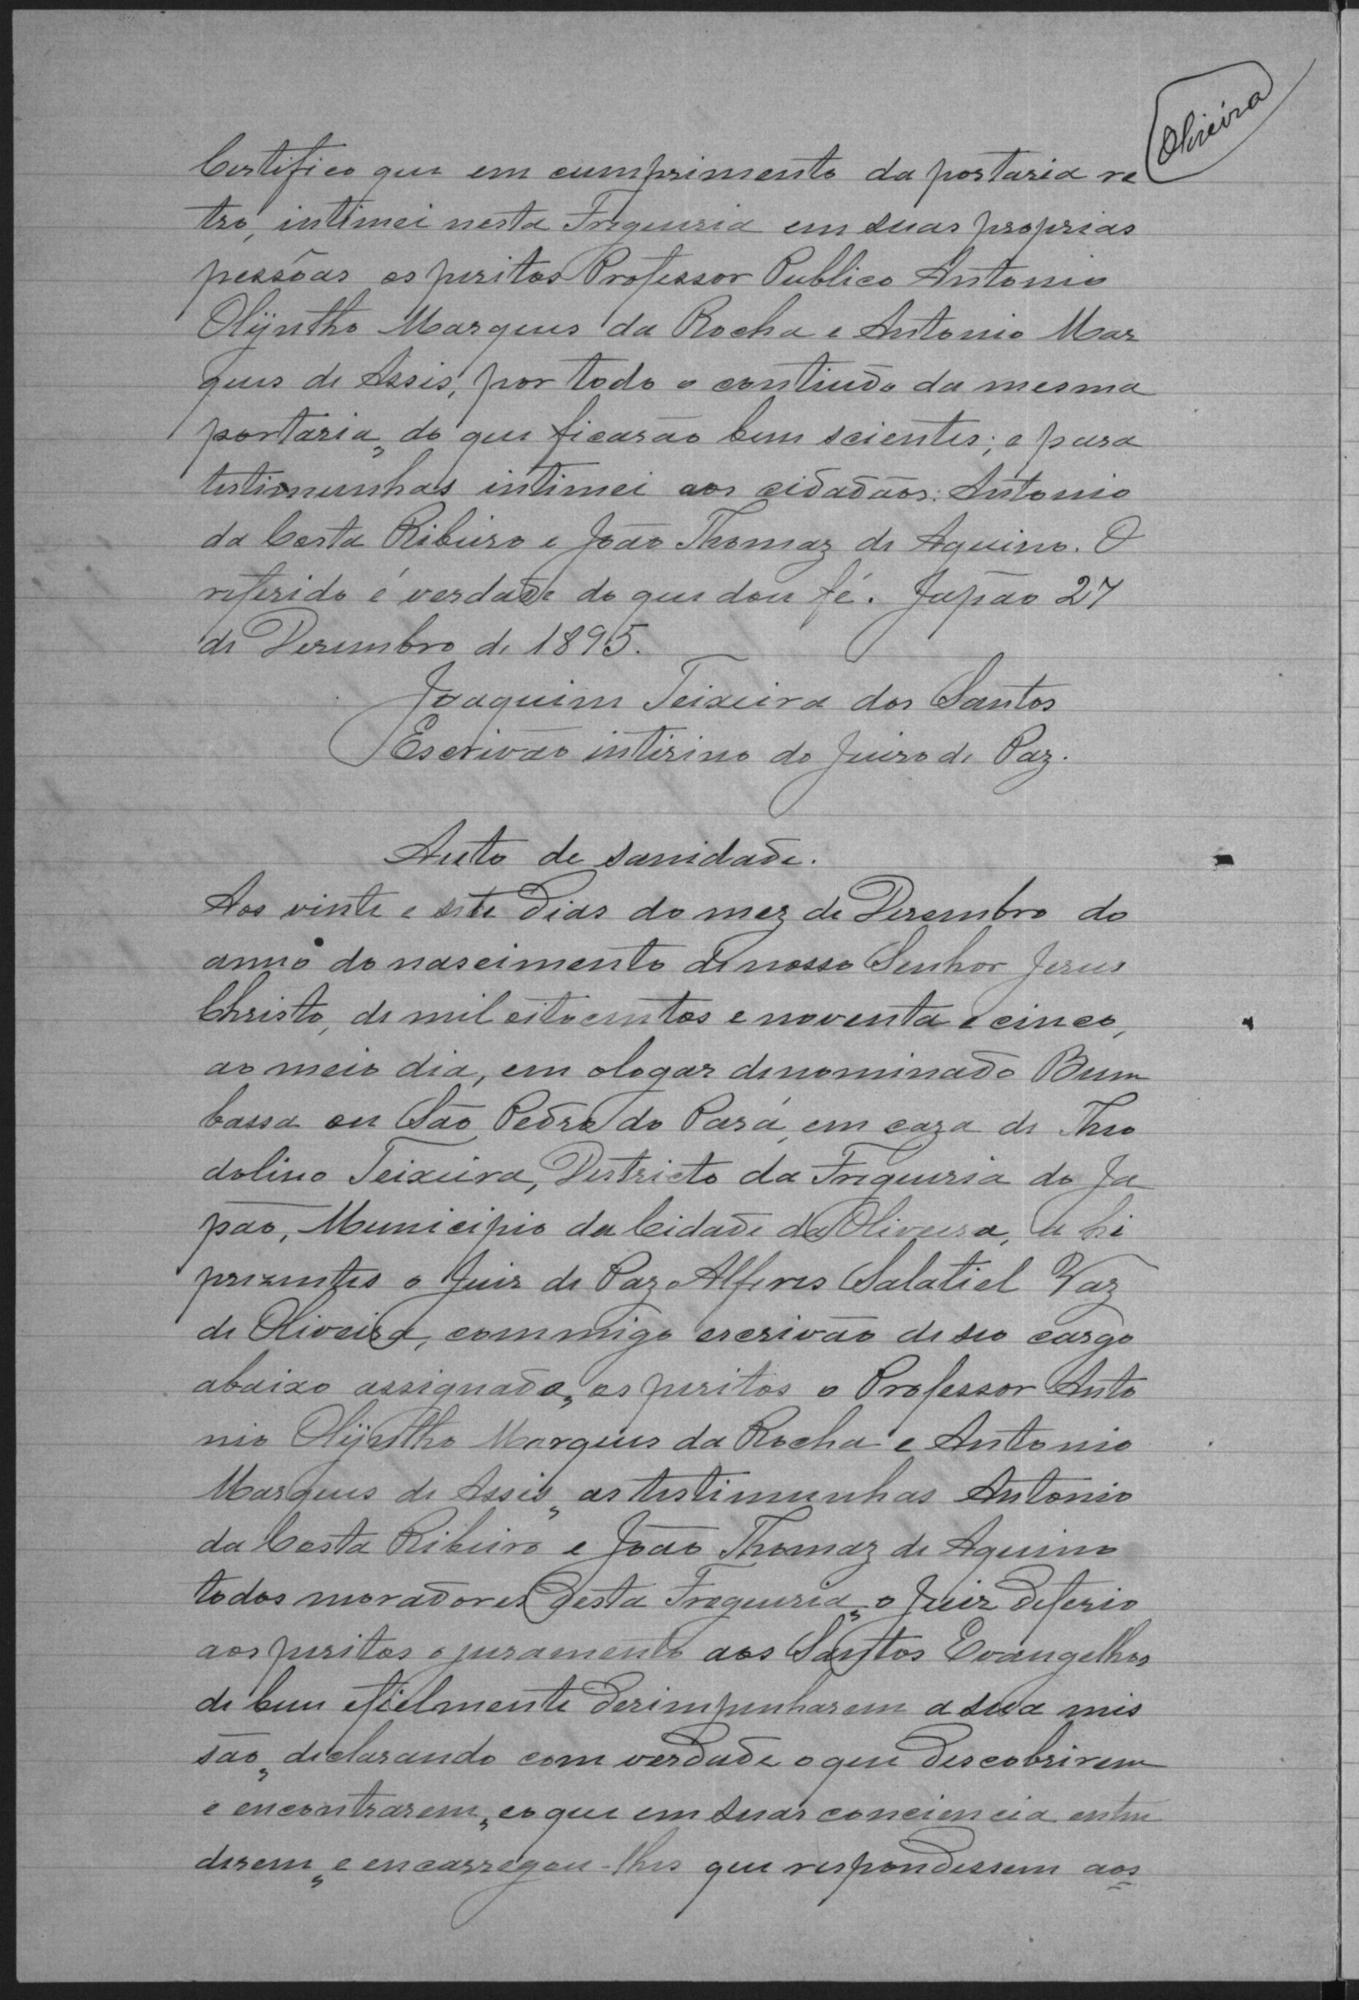 Oliveira
Certifico que em cumprimento da portaria re
tro, intimei nesta Freguezia em suas proprias
pessôas os peritos Professor Publico Antonio
Olÿntho Marques da Rocha e Antonio Mar
ques de Assis, por todo o contiudo da mesma
portaria, do que ficarão bem scientes; e para
testimunhas intimei aos cidadãos: Antonio
da Costa Ribeiro e João Thomaz de Aquino. O
referido é verdade do que dou fé. Japão 27
de Dezembro de 1895.
Joaquim Teixeira dos Santos
Escrivão interino do Juizo de Paz.
Auto de sanidade.
Aos vinte e sete dias do mez de Dezembro do
anno do nascimento de nosso Senhor Jesus
Christo, de mil oitocentos e noventa e cinco,
ao meio dia, em o logar denominado Bum
bassa ou São Pedro do Pará, em caza de Theo
dolino Teixeira, Districto da Freguezia do Ja
pão, Municipio da Cidade da Oliveira, a hi
prezentes o Juiz de Paz Alferes Salatiel Vaz
de Oliveira, commigo escrivão de seo cargo
abaixo assignado, os peritos o Professor Anto
nio Olÿntho Marques da Rocha e Antonio
Marques de Assis, as testimunhas Antonio
da Costa Ribeiro e João Thomaz de Aquino
todos moradores desta Freguezia, o Juiz deferio
aos peritos o juramento aos Santos Evangelhos
de bem e fielmente dezimpenharem a sua mis
são, declarando com verdade o que descobrirem
e encontrarem, e o que em suas conciencia enten
derem, e encarregou-lhes que respondessem aos